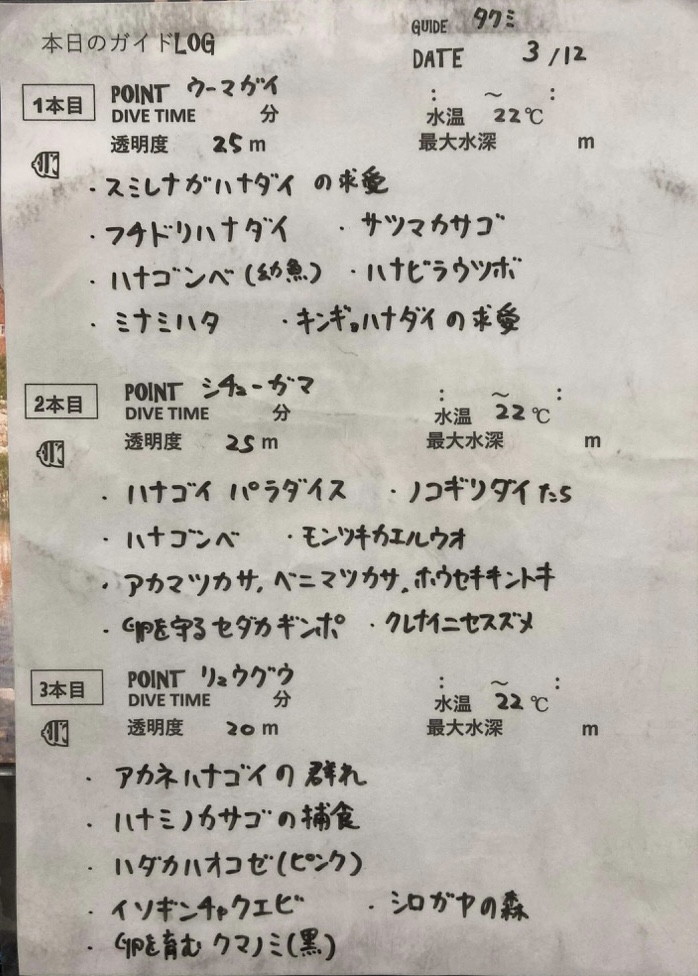 本日のガイドLOG
GUIDE タクミ
DATE 3/12
1本目 POINT ウーマガイ : ～ :
DIVE TIME 分 水温 22℃
透明度 25m 最大水深 m
・スミレナガハナダイ の求愛
・フチドリハナダイ ・サツマカサゴ
・ハナゴンベ(幼魚) ・ハナビラウツボ
・ミナミハタ ・キンギョハナダイ の求愛
2本目 POINT シチューガマ : ～ :
DIVE TIME 分 水温 22℃
透明度 25m 最大水深 m
・ハナゴイ パラダイス ・ノコギリダイ たち
・ハナゴンベ ・モンツキカエルウオ
・アカマツカサ, ベニマツカサ, ホウセキキントキ
・卵を守る セダカギンポ ・クレナイニセスズメ
3本目 POINT リュウグウ : ～ :
DIVE TIME 分 水温 22℃
透明度 20m 最大水深 m
・アカネハナゴイ の 群れ
・ハナミノカサゴ の 捕食
・ハダカハオコゼ(ピンク)
・イソギンチャクエビ ・シロガヤの森
・卵を育む クマノミ(黒)